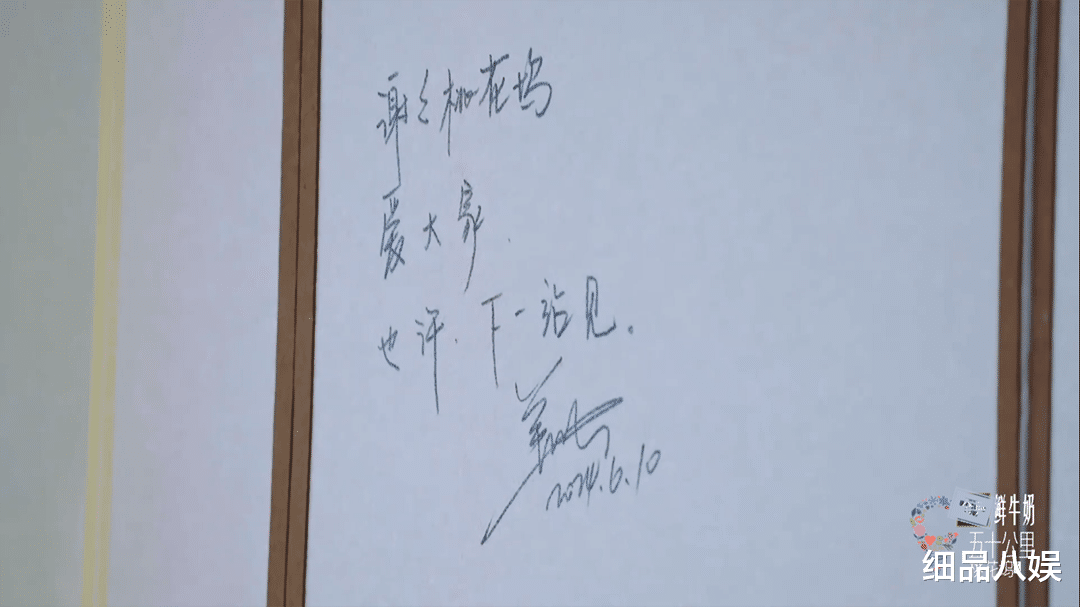 谢谢桃花坞
爱大家.
也许.下一站见.
2024.6.10
鲜牛奶
五十公里
细品八娱